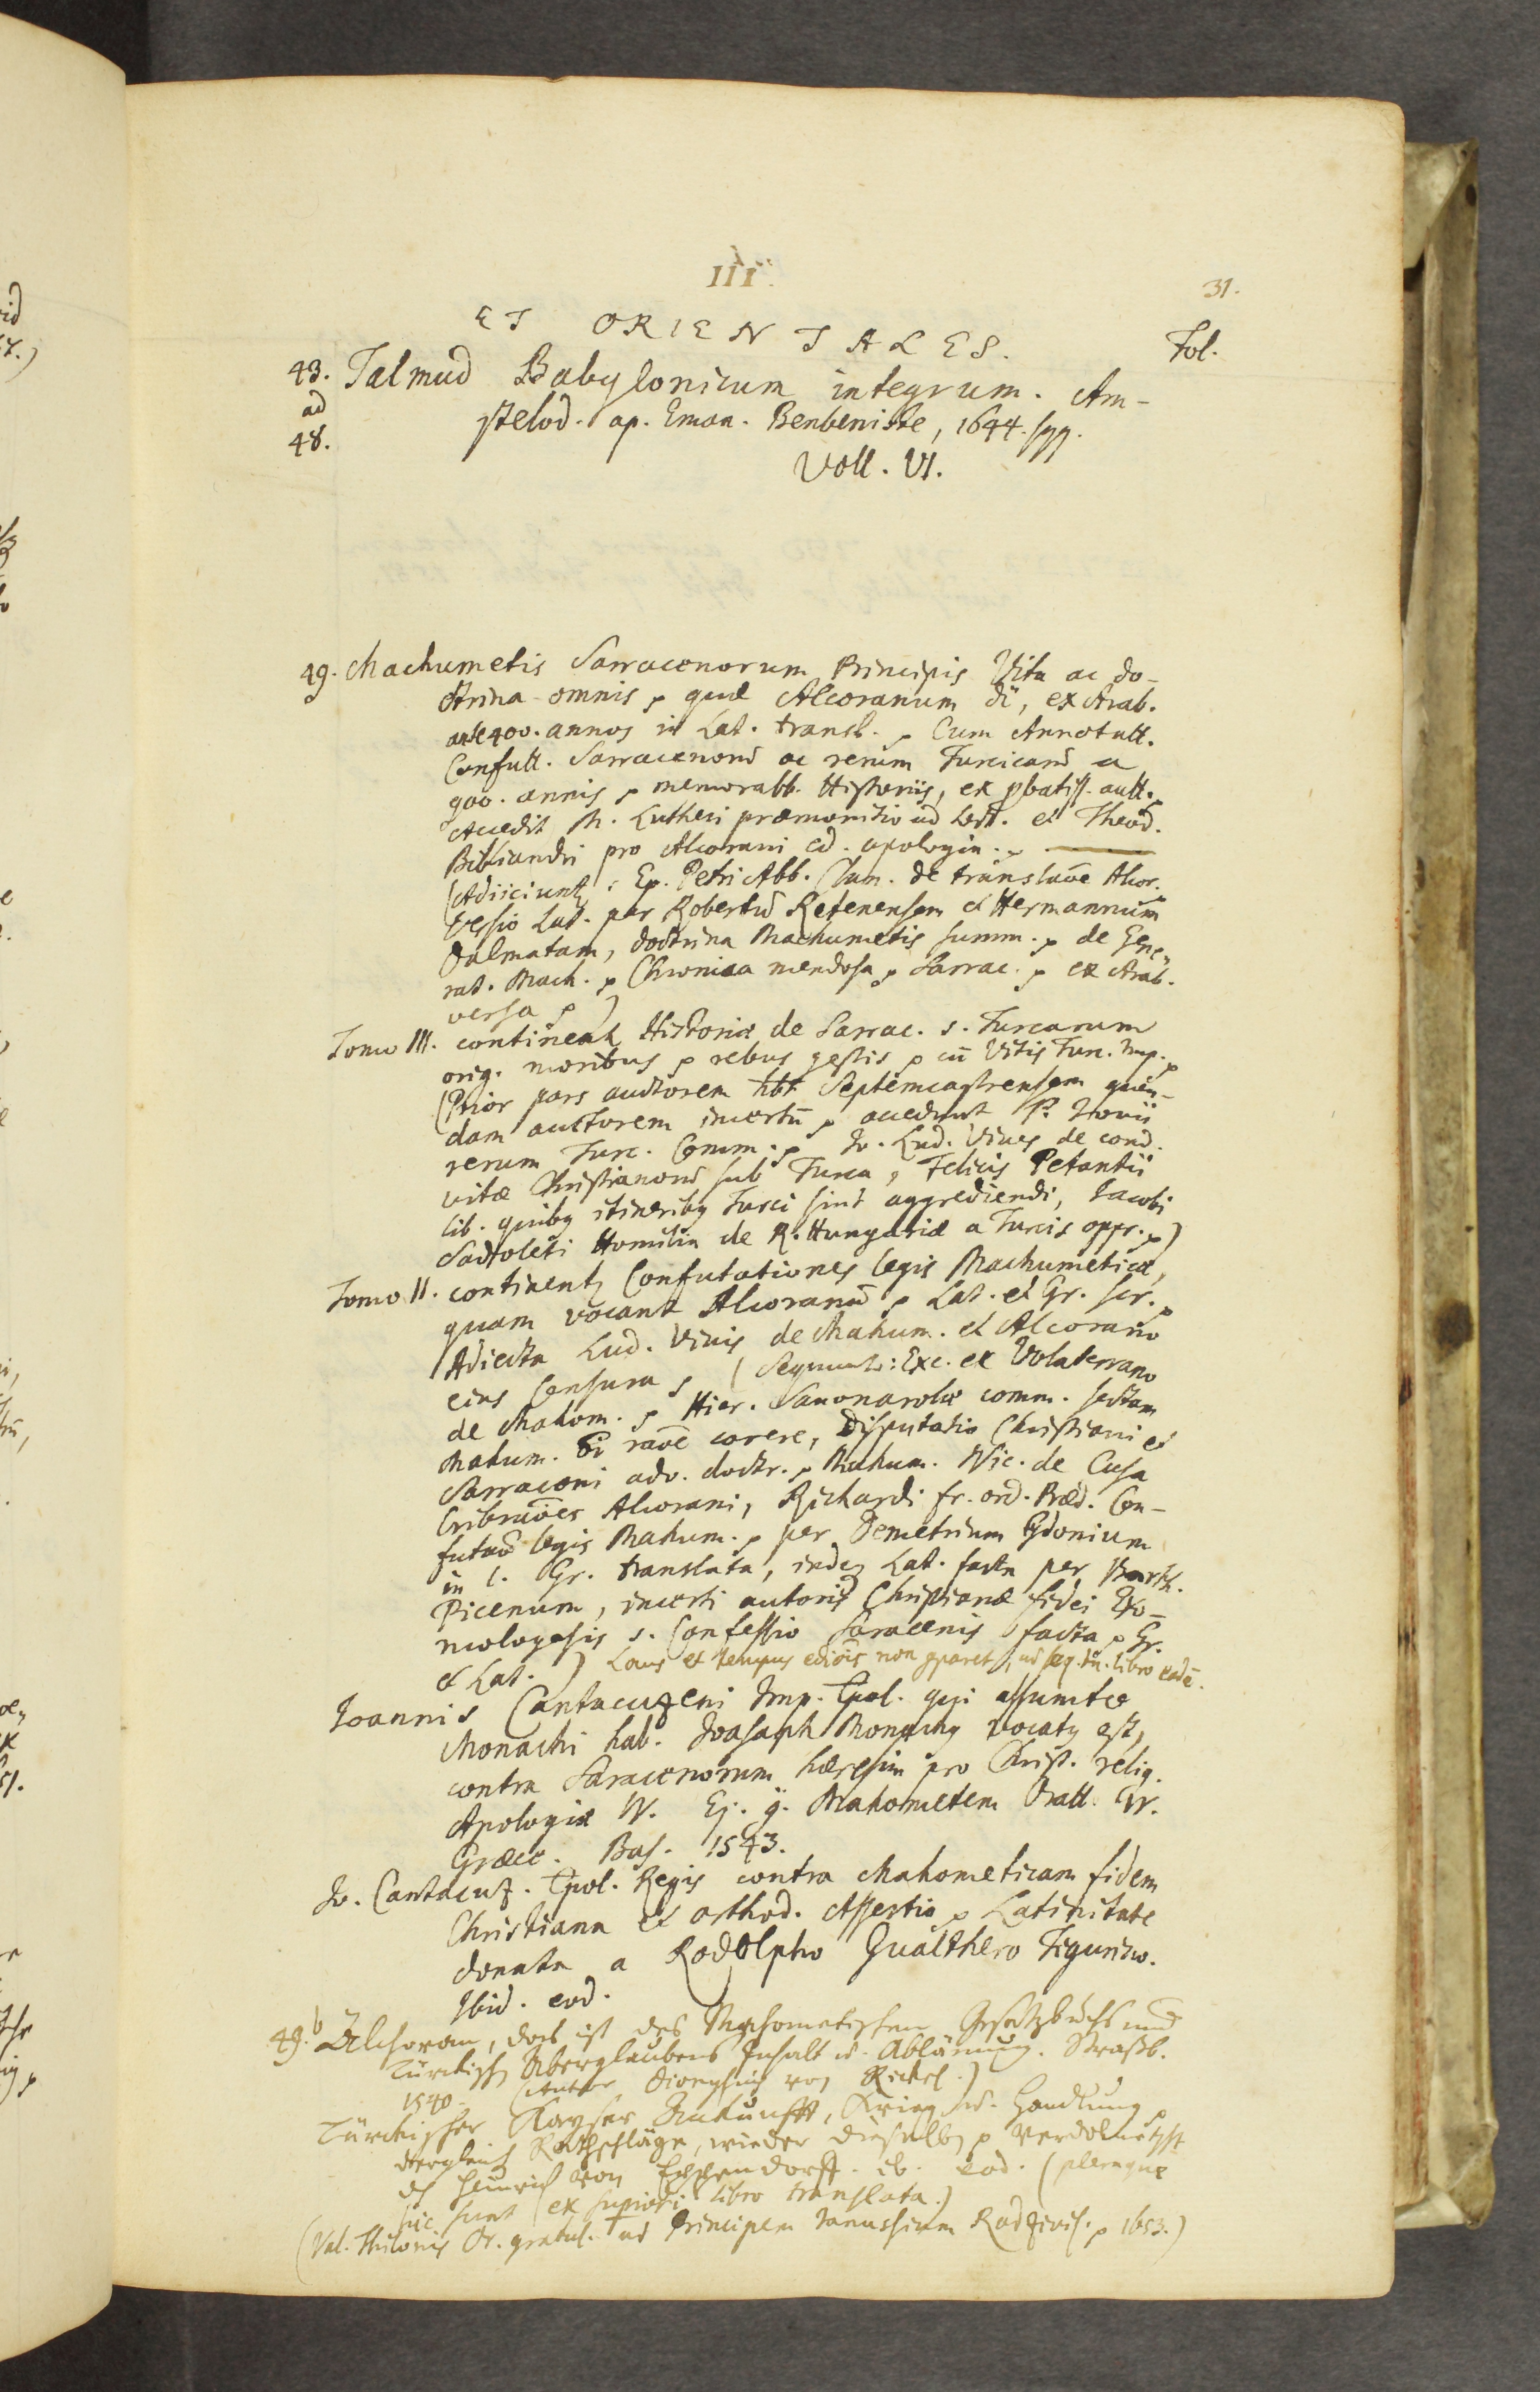 III.
31.
ET ORIENTALES. Fol.
43. Talmud Babylonicum integrum. Am-
ad stelod. ap. Eman. Benbeniste, 1644. sqq.
48. Voll. VI.
49. Machumetis Sarracenorum Principis Vita ac do-
ctrina omnis, quae Alcoranum dr, ex Arab.
ante 400. annos in Lat. transl. Cum Annotatt.
Confutt. Sarracenorum ac rerum Turcicarum a
900. annis memorabb. Historiis, ex probatiss. autt.
Accedit M. Lutheri praemonitio ad Lect. et Theod.
Bibliandri pro Alcorani ed. apologia.
(Adiiciuntur: Ep. Petri Abb. Clun. de translatione Alcor.
versio Lat. per Robertum Retenensem et Hermannum
Dalmatam, doctrina Machumetis summ. de Gene-
rat. Mach. Chronica mendosa Sarrac. ex Arab.
versa)
Tomo III. continent Historiae de Sarrac. s. Turcarum
orig. moribus rebus gestis cum Vitis Turc. Imp.
(Prior pars auctorem hbt Septemcastrensem quen-
dam auctorem incertum accedunt P. Jovii
rerum Turc. Comm. Jo. Lud. Vives de cond.
vitae Christianorum sub Turca, Felicis Petantii
lib. quibus itineribus Turci sint aggrediendi, Jacobi
Sadoleti Homilia de R. Hungariae a Turcis oppr.)
Tomo II. continentur Confutationes legis Machumeticae,
quam vocant Alcoranum Lat. et Gr. scr.
Adiecta Lud. Vivis de Mahum. et Alcorano
eius Censura (Sequuntur: Exc. ex Volaterrano
de Mahom. Hier. Savonarolae comm. sectam
Mahum. rane carere, Disputatio Christiani et
Sarraceni adv. doctr. Mahum. Nic. de Cusa
Cribrationes Alcorani, Richardi fr. ord. Praed. Con-
futatio legis Mahum. per Demetrium Cydonium
in l. Gr. translata, inde Lat. facta per Barth.
Picenum, incerti autoris Christianae fidei Exo-
mologesis s. Confessio Saracenis facta Gr.
et Lat.) Locus et tempus editionis non pparet, ut seq. tn. libro eadem.
Joannis Cantacuzeni Imp. Cpol. qui assumto
Monachi hab. Joasaph Monachus vocatus est,
contra Saracenorum haeresin pro Christ. relig.
Apologiae IV. Ej. g. Mahometem Oratt. IV.
Graece. Bas. 1543.
Jo. Cantacuz. Cpol. Regis contra Mahometicam fidem
Christiana et orthod. Assertio Latinitate
donata a Rodolpho Gualthero Tigurino.
Ibid. eod.
49.b Alchoran, das ist des Mahometischen Gesetzbuchs und
Türckisch Aberglaubens Inhalt u. Ablänung. Straßb.
1540. (Autor Dionysius von Rickel.)
Türckischer Kayser Ankunfft, Krieg u. Handlung
dergleich Rathschläge, wieder dieselbe Verdolmetscht
dch Heinrich von Eppendorff. ib. eod. (pleraque
hic sunt ex superiori libro translata.)
(Val. Thilonis Or. gratul. ad Principem Janussium Radzivil. 1653.)